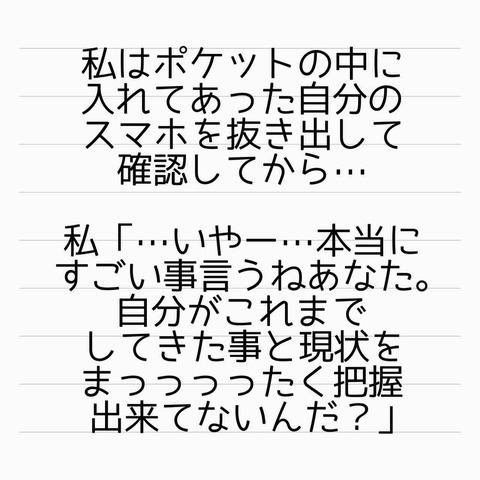 私はポケットの中に
入れてあった自分の
スマホを抜き出して
確認してから…
私「…いやー…本当に
すごい事言うねあなた。
自分がこれまで
してきた事と現状を
まっっっったく把握
出来てないんだ？」